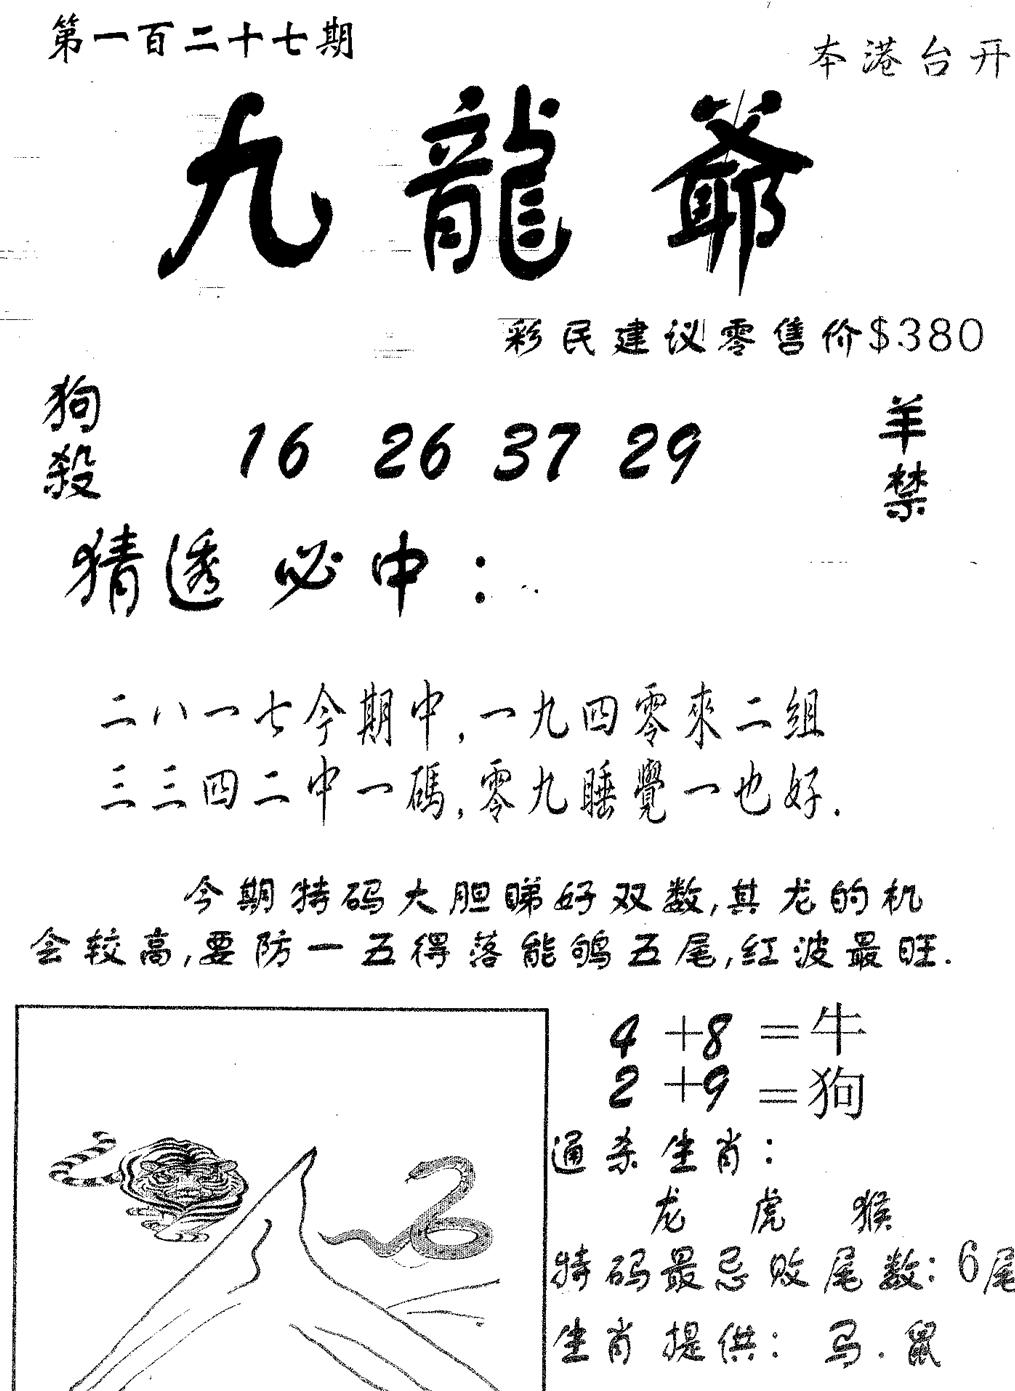 第一百二十七期
本港台开
九龍爺
彩民建议零售价$380
狗殺 16 26 37 29 羊禁
猜透必中：
二八一七今期中,一九四零來二組
三三四二中一碼,零九睡覺一也好.
今期特码大胆睇好双数,其龙的机
会较高,要防一五得落能鸲五尾,红波最旺.
4+8=牛
2+9=狗
通杀生肖：
龙 虎 猴
特码最忌败尾数：6尾
生肖提供：马.鼠